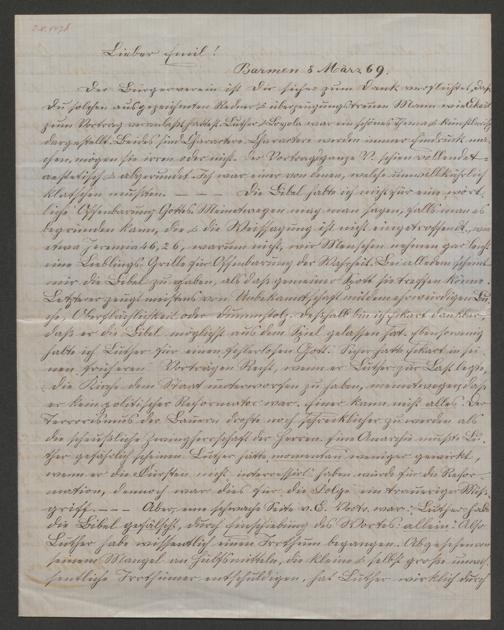 Lieber Emil!
Barmen 8 März 69.
Der Bürgerverein ist Dir sicher zum Dank verpflichtet, daß
Du solchen ausgezeichneten Redner & überzeugungstreuen Mann wie Eckart
zum Vortrag veranlaßt hattest. Luther & Loyola war ein schönes Thema & künstlerisch
dargestellt. Beides sind Charactere. Charactere werden immer Eindruck ma-
chen, mögen sie irren oder nicht. Der Vortragsganze schien vollendet
aesthetisch & abgerundet. Ich war einer von denen, welche unwillkührlich
klatschen mußten. — — — Die Bibel halte ich nicht für eine wört-
liche Offenbarung Gottes. Meinetwegen mag man sagen, falls man es
begründen kann, die & die Weissagung ist nicht eingetroffen
etwa Jeremia 46, 26, warum nicht, wir Menschen nehmen gar leicht
eine Lieblings-Grille für Offenbarung der Wahrheit. Bei alledem scheint
mir die Bibel zu erhaben, als daß gemeiner Spott sie treffen könne.
Letzterer zeugt meistens von Unbekanntschaft mit dem ehrwürdigen
Oberflächlichkeit oder Dummstolz. Deshalb bin ich Eckart dankbar,
daß er die Bibel möglichst aus dem Spiel gelassen hat. Ebensowenig
halte ich Luther für einen fehlerlosen Gott. Schon hatte Eckart in sei-
nen früheren Vorträgen Recht, wenn er Luther zur Last legte,
die Kirche dem Staat unterworfen zu haben, meinetwegen daß
er kein politischer Reformator war. Einer kann nicht alles. Der
Terrorismus der Bauern drohte noch schrecklicher zu werden als
die scheußliche Zwangsherrschaft der Herren. Eine Anarchie mußte Lu-
ther gefährlich scheinen. Luther hätte momentan weniger gewirkt,
wenn er die Fürsten nicht interessirt haben würde für die Refor-
mation, dennoch war dies für die Folge ein trauriger Miß-
griff. — — — Aber, eine schwache Seite v. E. Vortr. war: Luther habe
die Bibel gefälscht, durch Einschiebung des Wortes allein: Also
Luther habe wissentlich einen Irrthum begangen. Abgesehen von
seinem Mangel an Hülfsmitteln, die kleine & selbst große unwis-
sentliche Irrthümer entschuldigen, hat Luther wirklich durch